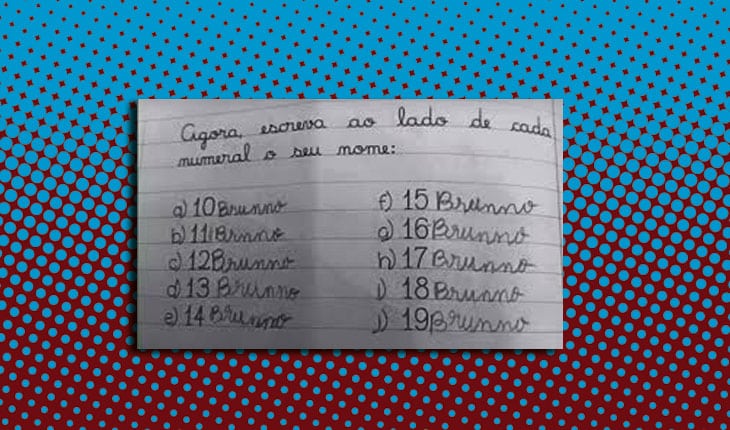 Agora, escreva ao lado de cada
numeral o seu nome:
a) 10 Brunno
b) 11 Brnno
c) 12 Brunno
d) 13 Brunno
e) 14 Brunno
f) 15 Brunno
g) 16 Brunno
h) 17 Brunno
i) 18 Brunno
j) 19 Brunno